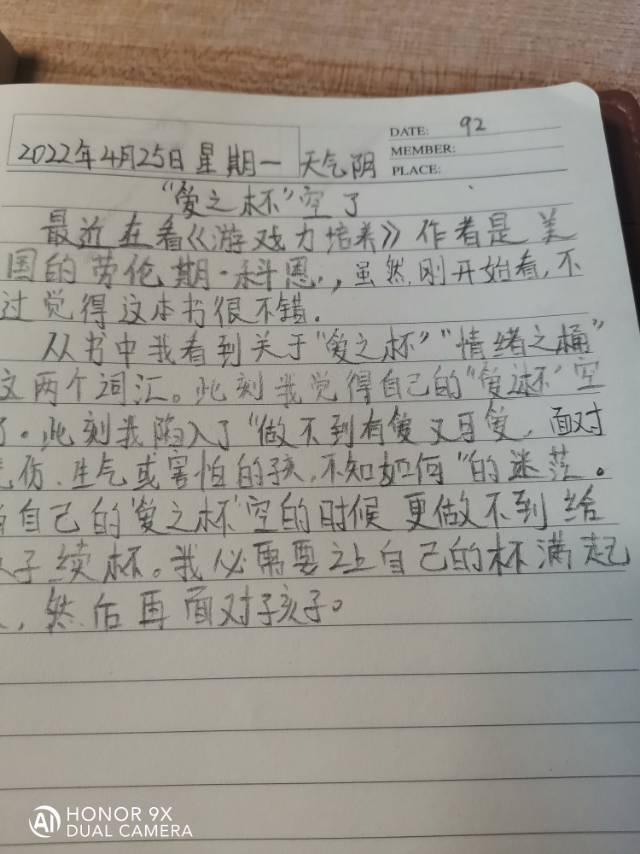 DATE: 92
MEMBER:
PLACE:
2022年4月25日星期一 天气阴
“爱之杯”空了
最近在看《游戏力培养》作者是美
国的劳伦期·科恩.,虽然刚开始看,不
过觉得这本书很不错.
从书中我看到关于“爱之杯”“情绪之桶”
这两个词汇。此刻我觉得自己的“爱之杯”空
了。此刻我陷入了“做不到有爱又可爱,面对
伤、生气或害怕的孩,不知如何”的迷茫。
自己的“爱之杯”空的时候更做不到给
子续杯。我必需要让自己的杯满起
,然后再面对孩子。
HONOR 9X
AI DUAL CAMERA